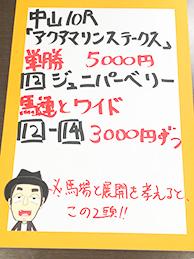 中山10R
「アクアマリンステークス」
単勝 5000円
12ジュニパーベリー
馬連とワイド
12-14 3000円ずつ
※馬場と展開を考えると、
この2頭!!